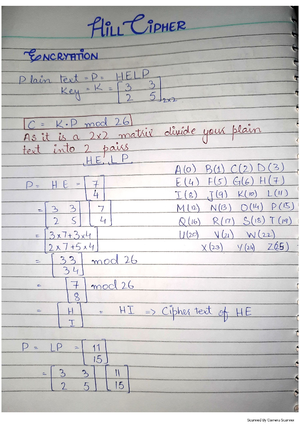 HILL CIPHER
ENCRYPTION
Plain text = P = HELP
Key = K = [3 3
2 5]2x2
C = K.P mod 26
As it is a 2x2 matrix divide your plain
text into 2 pairs
HE, LP
A(0) B(1) C(2) D(3)
E(4) F(5) G(6) H(7)
I(8) J(9) K(10) L(11)
M(12) N(13) O(14) P(15)
Q(16) R(17) S(18) T(19)
U(20) V(21) W(22)
X(23) Y(24) Z(25)
P = HE = [7
4]
= [3 3
2 5] [7
4]
= [3x7+3x4
2x7+5x4]
= [33
34] mod 26
= [7
8] mod 26
= [H
I] = HI => Cipher text of HE
P = LP = [11
15]
= [3 3
2 5] [11
15]
Scanned By Camera Scanner